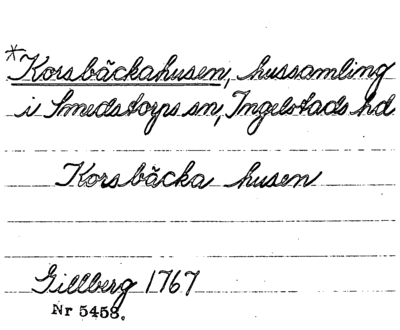 *Korsbäckahusen, hussamling
i Smedstorps sn, Ingelstads hd
Korsbäcka husen
Gillberg 1767
Nr 5458.